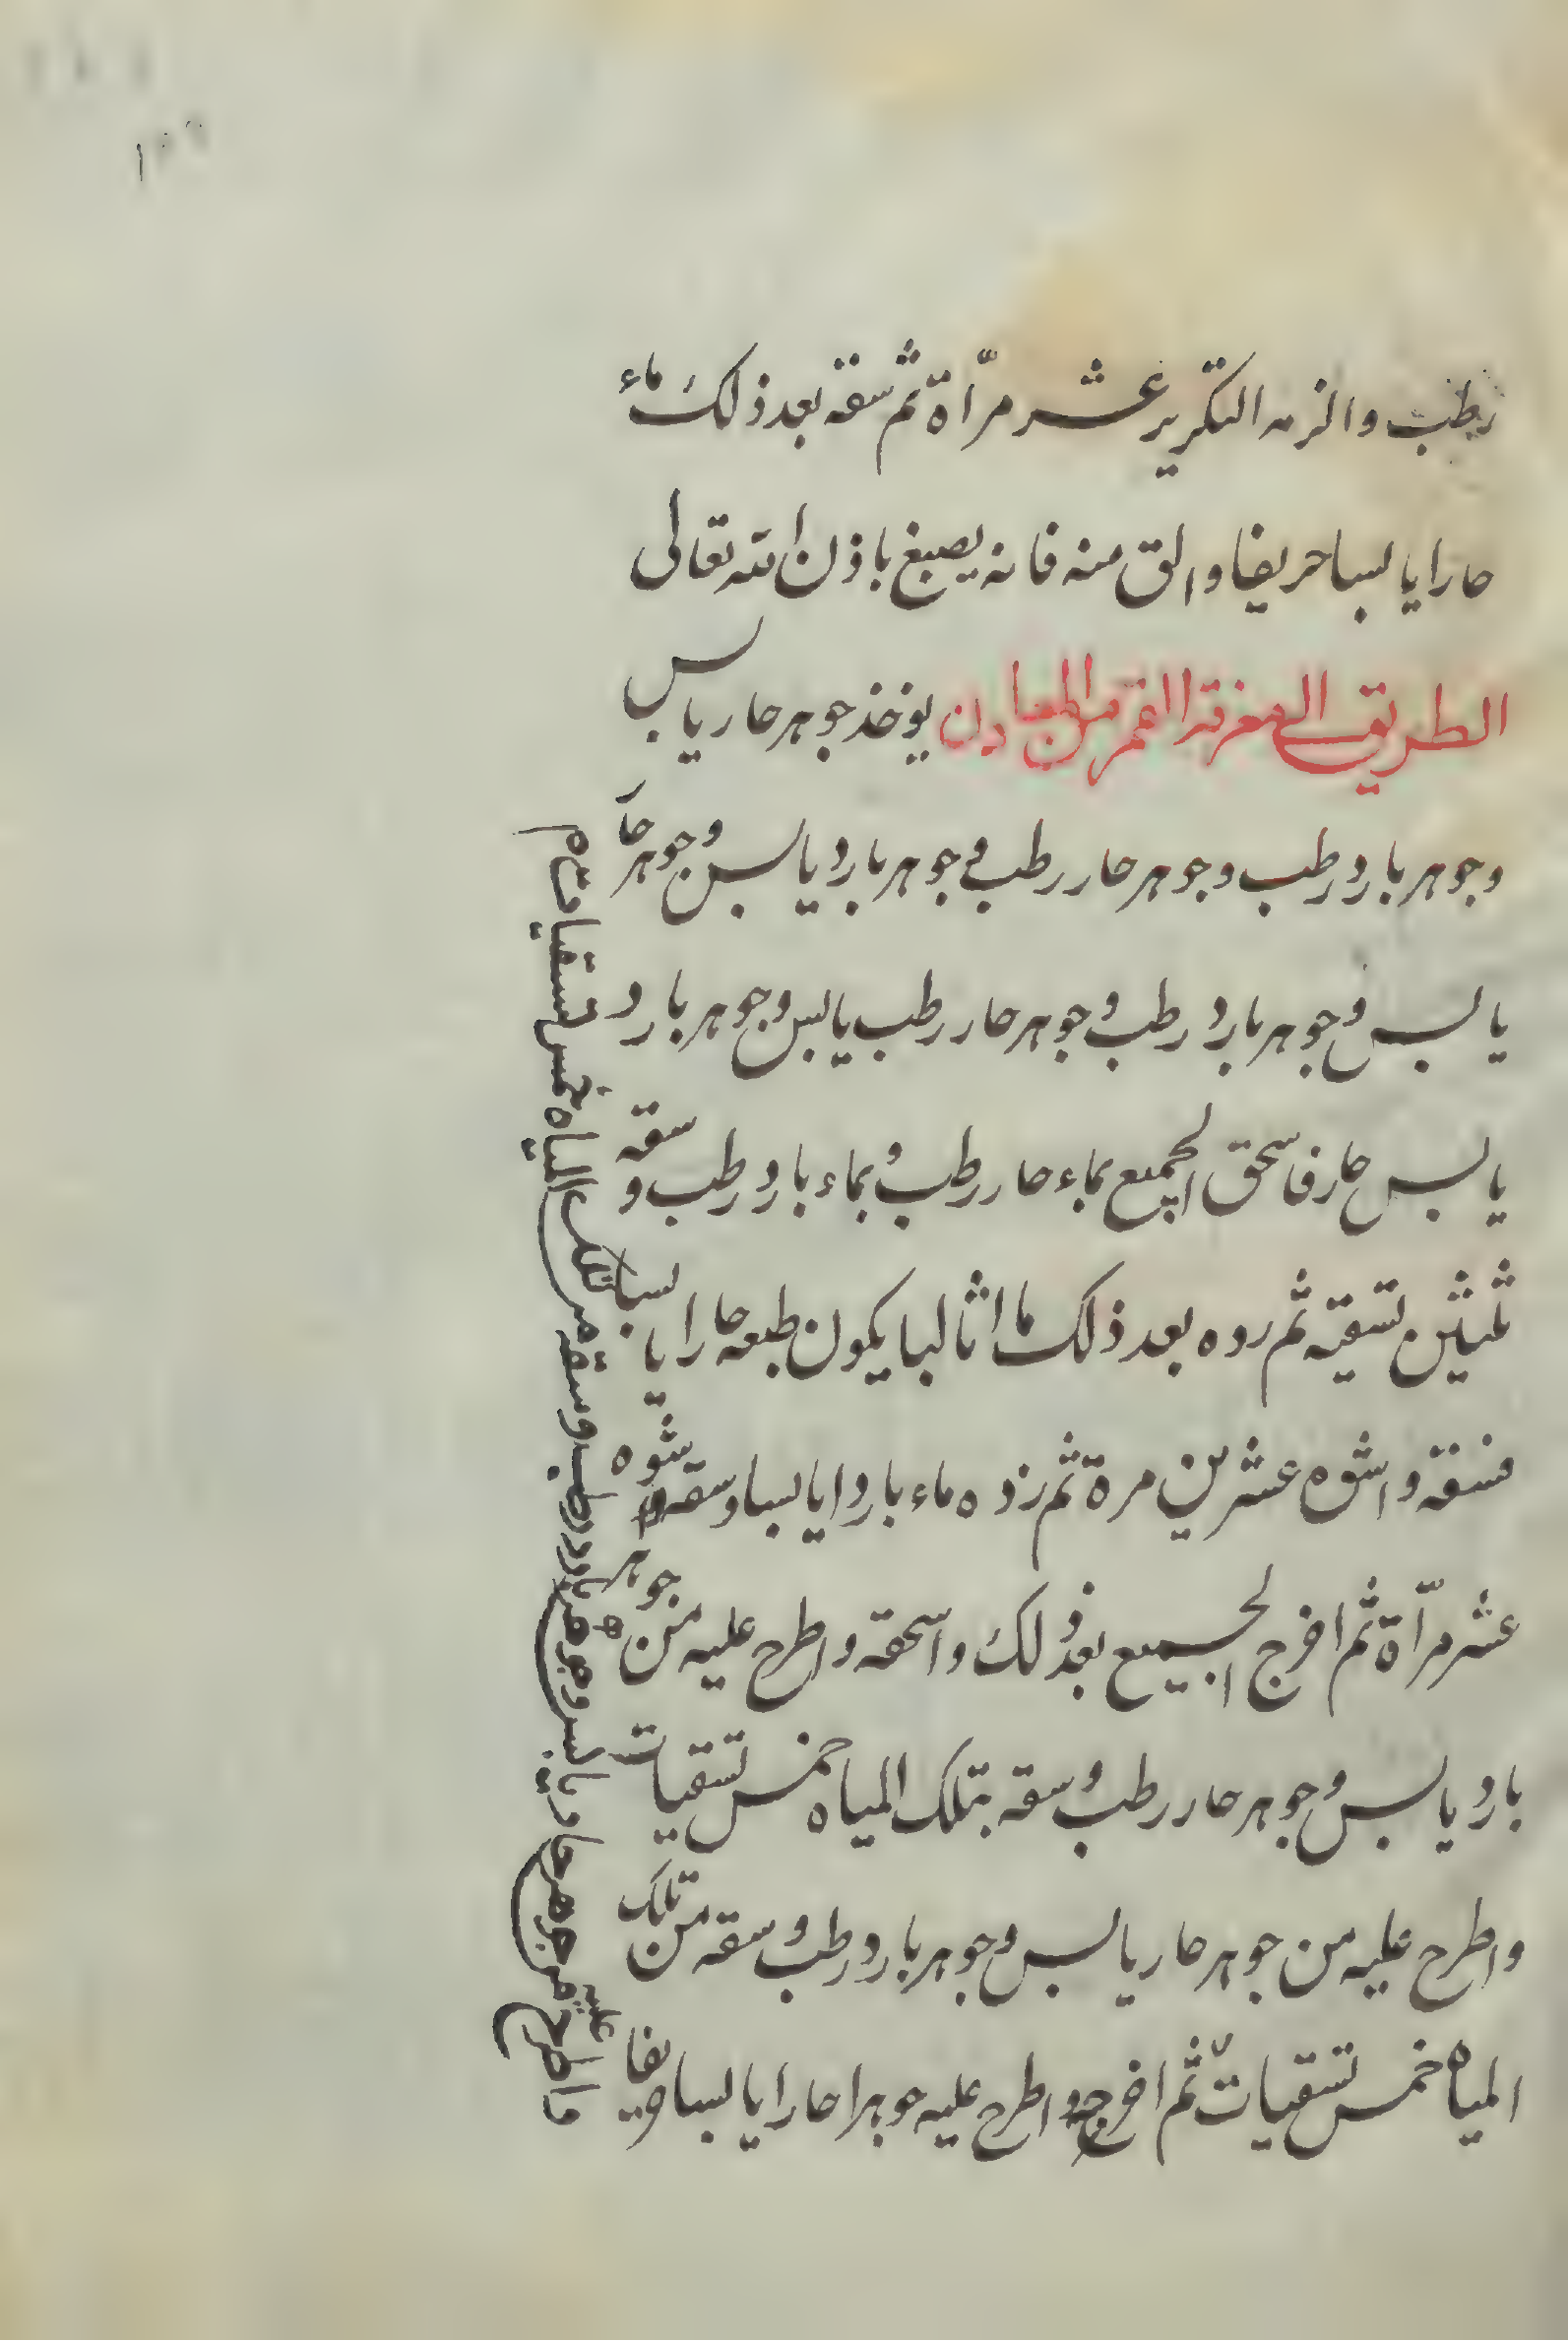 رطب والزمه التكرير عشر مرّاة ثم سقه بعد ذلك ماء
حارا يابسا حريفا والق منه فانه يصبغ باذن الله تعالى
الطريق الى معرفة القمر من المعادن يوخذ جوهر حار يابس
وجوهر بارد رطب وجوهر حار رطب في جوهر بارد يابس وجوهر حار
يابس وجوهر بارد رطب وجوهر حار رطب يابس وجوهر بارد
يابس حار فاسحق الجميع بماء حار رطب وبماء بارد رطب وسقه
ثلثين تسقية ثم رده بعد ذلك ما اثالبا يكون طبعه حارا يابسا
فسقه واشوه عشرين مرة ثم زده ماء باردا يابسا وسقه وشوه
عشر مرّاة ثم اخرج الجميع بعد ذلك واسحقه واطرح عليه من جوهر
بارد يابس وجوهر حار رطب وسقه بتلك المياه خمس تسقيات
واطرح عليه من جوهر حار يابس وجوهر بارد رطب وسقه من تلك
المياه خمس تسقيات ثم اخرجه واطرح عليه جوهرا حارا يابسا
واطرح عليه من جوهر حار يابس وجوهر بارد رطب وسقه من تلك المياه خمس تسقيات